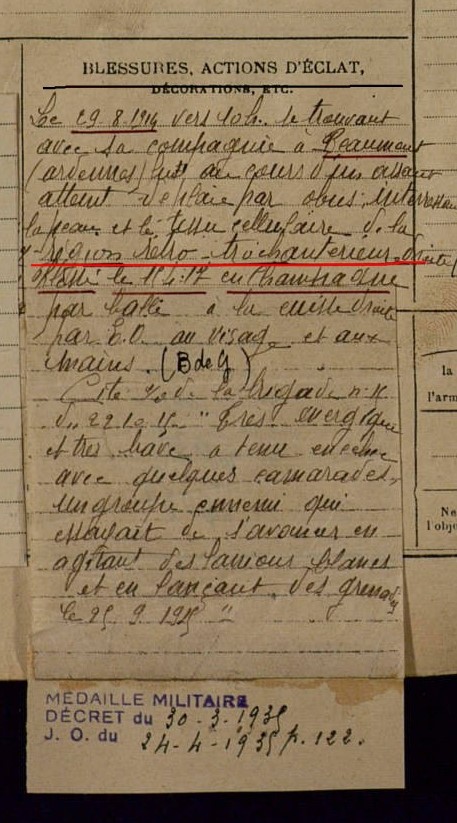 BLESSURES, ACTIONS D'ÉCLAT,
DÉCORATIONS, ETC.
Le 29.8.1914 vers 10h. se trouvant
avec sa compagnie à Beaumont
(ardennes) fut au cours d'un assaut
atteint de plaie par obus interessant
la peau et le tissu cellulaire de la
région retro-trochanterienne droite
Blessé le 15.4.17 en Champagne
par balle à la cuisse droite
par E.O. au visage et aux
mains. (B de G)
Cité à de la brigade n.
du 22 10 15 " Tres energique
et tres brave a tenu en echec
avec quelques camarades,
un groupe ennemi qui
essayait de s'avancer en
agitant des fanions blancs
et en lançant des grenades
le 25 9 1915 "
MÉDAILLE MILITAIRE
DÉCRET du 30-3-1935
J. O. du 24-4-1935 p. 122.
la
l'arm
Ne
l'obje